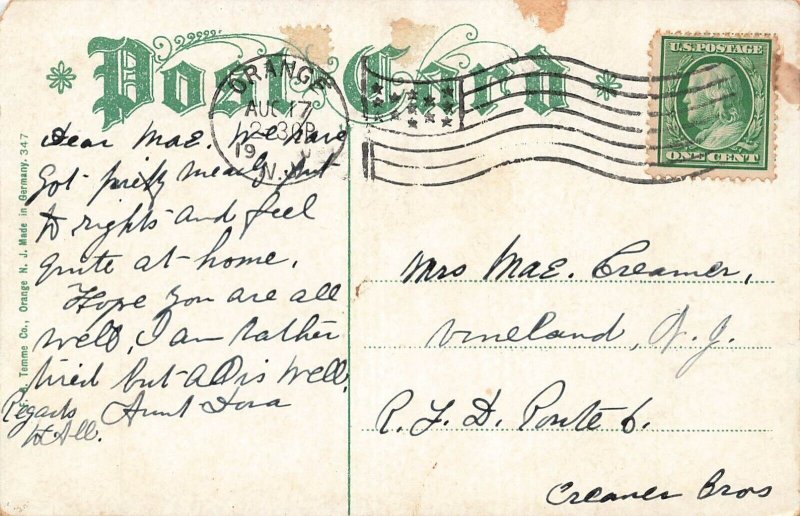 Post Card
U.S. POSTAGE
ONE CENT
ORANGE
AUG 17
2-30P
19
N.J.
Dear Mae. We have
Got pretty nearly put
to rights and feel
quite at home.
Hope you are all
well, I am rather
tired but All is well.
Regards Aunt Dora
to All.
Mrs Mae. Creamer,
Vineland, N.J.
R. F. D. Route 6.
Creamer Bros
Temme Co., Orange N. J. Made in Germany. 347